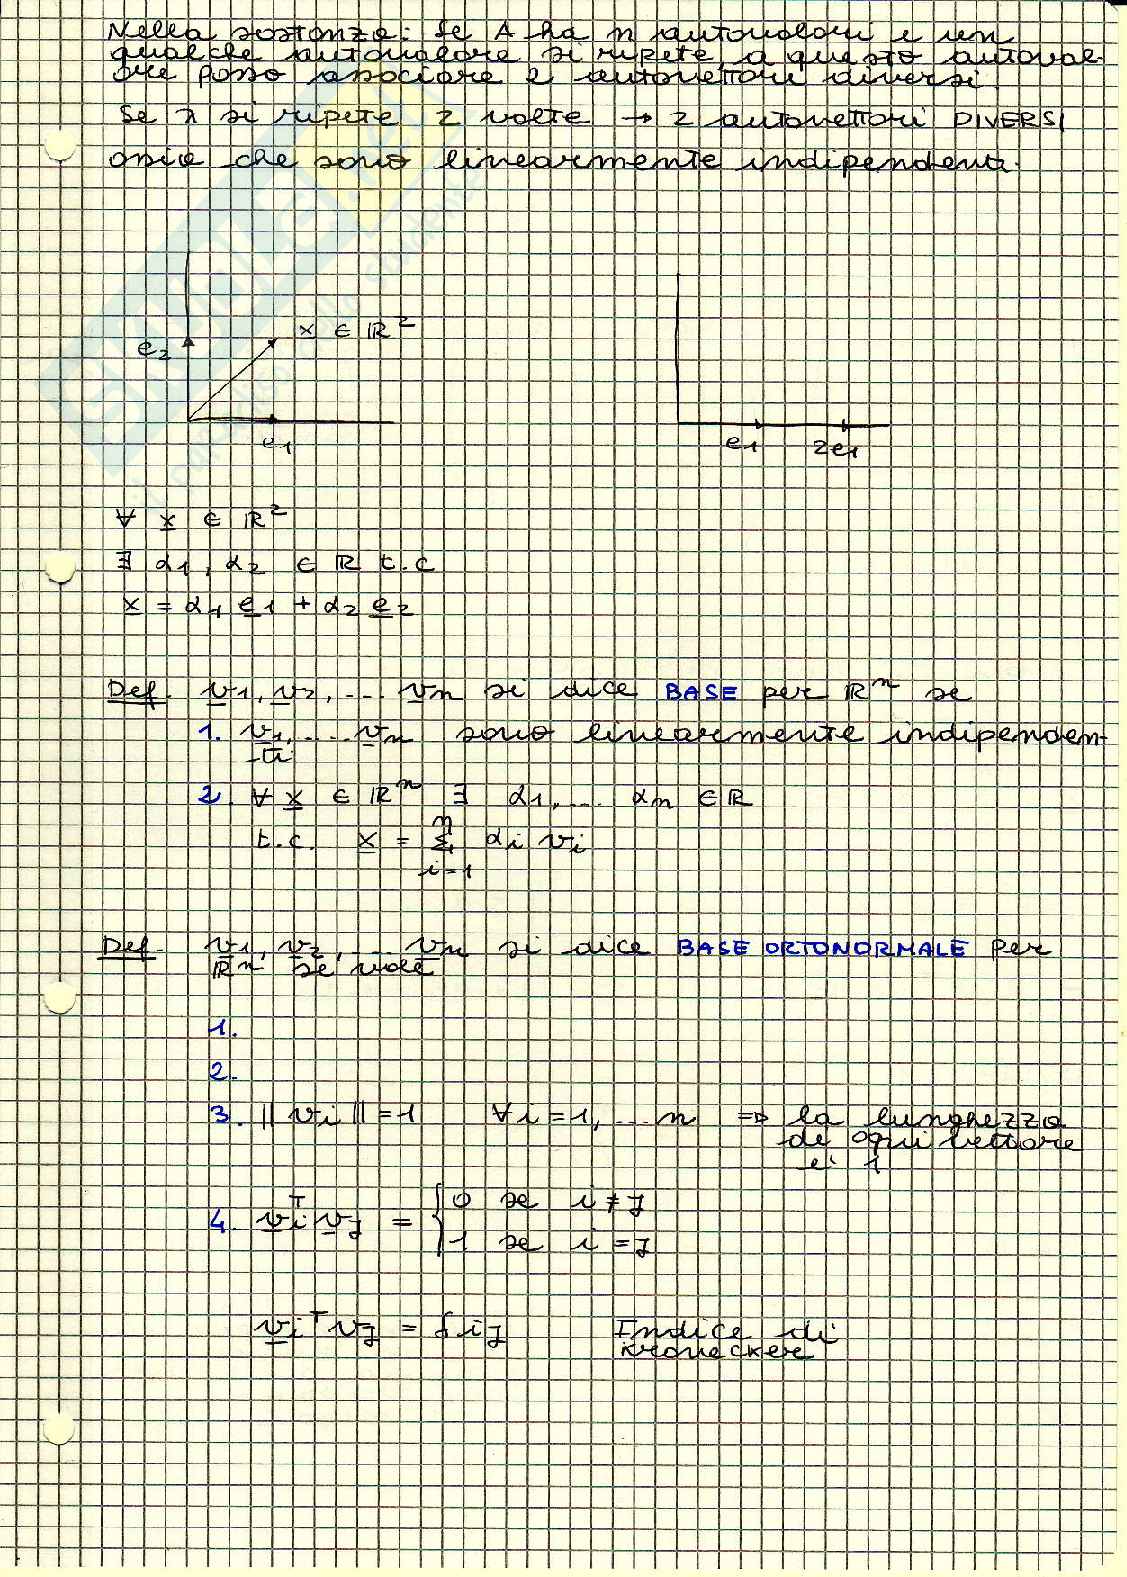 Nella sostanza: se A ha n autovalori e un
qualche autovalore si ripete, a questo autoval-
ore posso associare 2 autovettori diversi.
Se λ si ripete 2 volte → 2 autovettori DIVERSI
ossia che sono linearmente indipendenti.
e2
x ∈ ℝ²
e1
e1 2e1
∀ x ∈ ℝ²
∃ α1, α2 ∈ ℝ t.c
x = α1 e1 + α2 e2
Def. v1, v2, ... vn si dice BASE per ℝⁿ se
1. v1, ... vn sono linearmente indipenden-
-ti
2. ∀ x ∈ ℝⁿ ∃ α1, ... αn ∈ ℝ
t.c. x = Σ αi vi
n
i=1
Def. v1, v2, ... vn si dice BASE ORTONORMALE per
ℝⁿ se vale
1.
2.
3. ||vi|| = 1 ∀i = 1, ... n ⇒ la lunghezza
di ogni vettore
e' 1
4. viᵀ vj = { 0 se i ≠ j
1 se i = j
viᵀ vj = δij Indice di
Kronecker